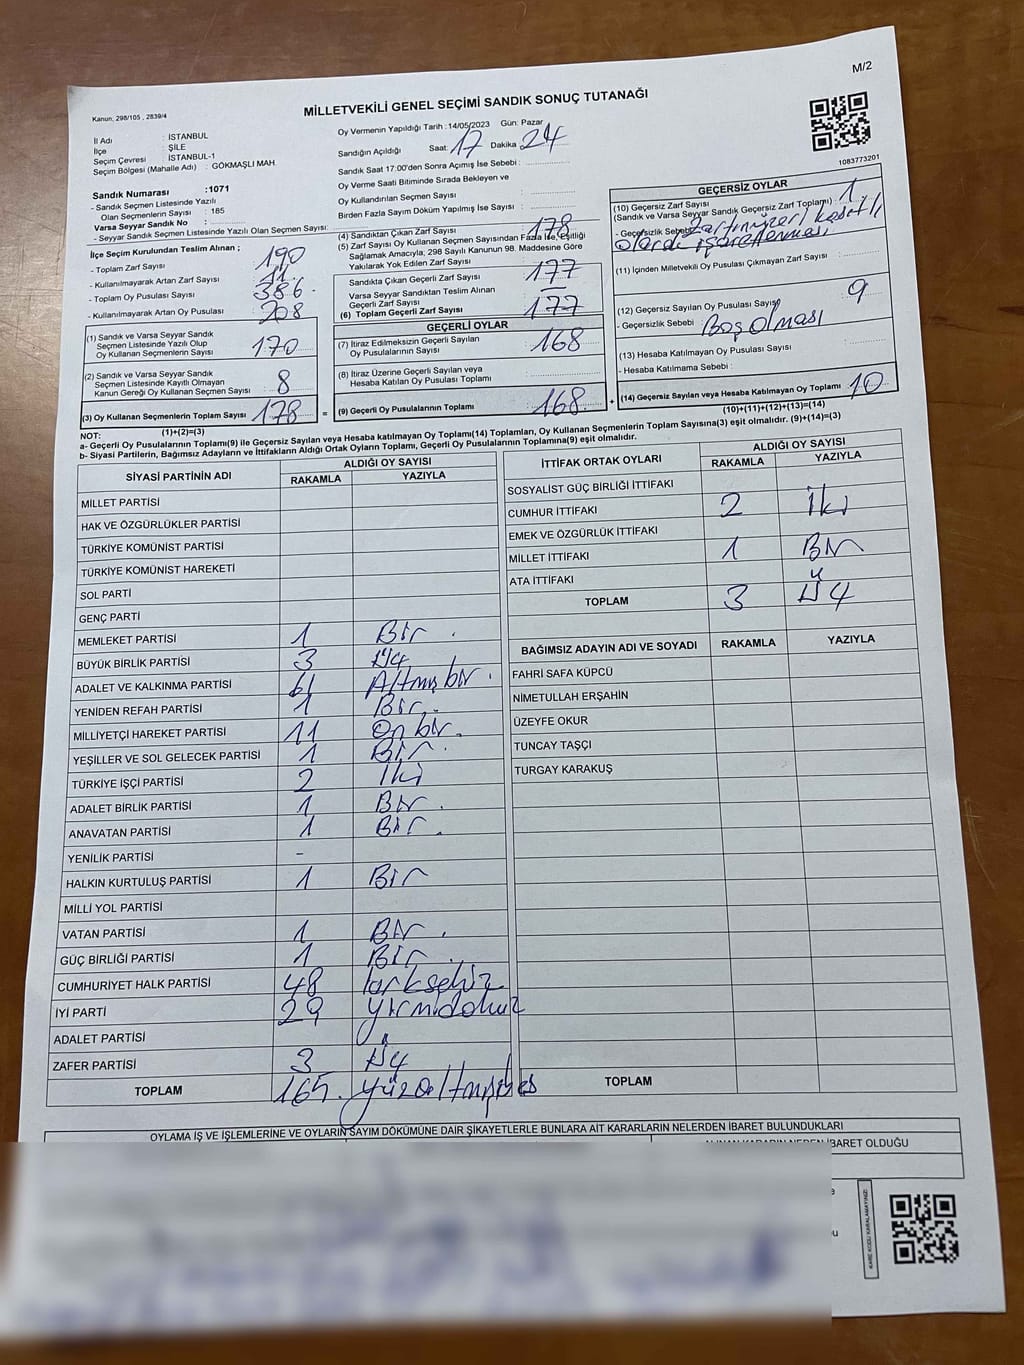 M/2
MİLLETVEKİLİ GENEL SEÇİMİ SANDIK SONUÇ TUTANAĞI
Kanun; 298/105 , 2839/4
İl Adı : İSTANBUL
İlçe : ŞİLE
Seçim Çevresi : İSTANBUL-1
Seçim Bölgesi (Mahalle Adı) : GÖKMAŞLI MAH.
Sandık Numarası :1071
- Sandık Seçmen Listesinde Yazılı
Olan Seçmenlerin Sayısı : 185
Varsa Seyyar Sandık No :
- Seyyar Sandık Seçmen Listesinde Yazılı Olan Seçmen Sayısı:
İlçe Seçim Kurulundan Teslim Alınan ;
- Toplam Zarf Sayısı 190
- Kullanılmayarak Artan Zarf Sayısı 11
- Toplam Oy Pusulası Sayısı 386.
- Kullanılmayarak Artan Oy Pusulası 208
(1) Sandık ve Varsa Seyyar Sandık
Seçmen Listesinde Yazılı Olup
Oy Kullanan Seçmenlerin Sayısı 170
(2) Sandık ve Varsa Seyyar Sandık
Seçmen Listesinde Kayıtlı Olmayan
Kanun Gereği Oy Kullanan Seçmen Sayısı 8
(3) Oy Kullanan Seçmenlerin Toplam Sayısı 178 =
(1)+(2)=(3)
Oy Vermenin Yapıldığı Tarih : 14/05/2023 Gün: Pazar
Sandığın Açıldığı Saat: 17 Dakika 24
Sandık Saat 17:00'den Sonra Açımış İse Sebebi :
Oy Verme Saati Bitiminde Sırada Bekleyen ve
Oy Kullandırılan Seçmen Sayısı :
Birden Fazla Sayım Döküm Yapılmış İse Sayısı :
(4) Sandıktan Çıkan Zarf Sayısı 178
(5) Zarf Sayısı Oy Kullanan Seçmen Sayısından Fazla İse, Eşitliği
Sağlamak Amacıyla; 298 Sayılı Kanunun 98. Maddesine Göre
Yakılarak Yok Edilen Zarf Sayısı
Sandıkta Çıkan Geçerli Zarf Sayısı 177
Varsa Seyyar Sandıktan Teslim Alınan
Geçerli Zarf Sayısı –
(6) Toplam Geçerli Zarf Sayısı 177
GEÇERLİ OYLAR
(7) İtiraz Edilmeksizin Geçerli Sayılan
Oy Pusulalarının Sayısı 168
(8) İtiraz Üzerine Geçerli Sayılan veya
Hesaba Katılan Oy Pusulası Toplamı
(9) Geçerli Oy Pusulalarının Toplamı 168 +
1083773201
GEÇERSİZ OYLAR
(10) Geçersiz Zarf Sayısı
(Sandık ve Varsa Seyyar Sandık Geçersiz Zarf Toplamı) : 1
- Geçersizlik Sebebi Zarfın üzeri kasıtlı
olarak işaretlenmesi
(11) İçinden Milletvekili Oy Pusulası Çıkmayan Zarf Sayısı :
(12) Geçersiz Sayılan Oy Pusulası Sayısı 9
- Geçersizlik Sebebi Boş olması
(13) Hesaba Katılmayan Oy Pusulası Sayısı :
- Hesaba Katılmama Sebebi :
(14) Geçersiz Sayılan veya Hesaba Katılmayan Oy Toplamı 10
(10)+(11)+(12)+(13)=(14)
NOT:
a- Geçerli Oy Pusulalarının Toplamı(9) ile Geçersiz Sayılan veya Hesaba katılmayan Oy Toplamı(14) Toplamları, Oy Kullanan Seçmenlerin Toplam Sayısına(3) eşit olmalıdır. (9)+(14)=(3)
b- Siyasi Partilerin, Bağımsız Adayların ve İttifakların Aldığı Ortak Oyların Toplamı, Geçerli Oy Pusulalarının Toplamına(9) eşit olmalıdır.
SİYASİ PARTİNİN ADI ALDIĞI OY SAYISI
RAKAMLA YAZIYLA
MİLLET PARTİSİ
HAK VE ÖZGÜRLÜKLER PARTİSİ
TÜRKİYE KOMÜNİST PARTİSİ
TÜRKİYE KOMÜNİST HAREKETİ
SOL PARTİ
GENÇ PARTİ
MEMLEKET PARTİSİ 1 Bir .
BÜYÜK BİRLİK PARTİSİ 3 Üç
ADALET VE KALKINMA PARTİSİ 61 Altmış bir .
YENİDEN REFAH PARTİSİ 1 Bir.
MİLLİYETÇİ HAREKET PARTİSİ 11 On bir.
YEŞİLLER VE SOL GELECEK PARTİSİ 1 Bir .
TÜRKİYE İŞÇİ PARTİSİ 2 İki
ADALET BİRLİK PARTİSİ 1 Bir .
ANAVATAN PARTİSİ 1 Bir .
YENİLİK PARTİSİ -
HALKIN KURTULUŞ PARTİSİ 1 Bir
MİLLİ YOL PARTİSİ
VATAN PARTİSİ 1 Bir .
GÜÇ BİRLİĞİ PARTİSİ 1 Bir .
CUMHURİYET HALK PARTİSİ 48 kırksekiz
İYİ PARTİ 29 yirmidokuz
ADALET PARTİSİ
ZAFER PARTİSİ 3 Üç
TOPLAM 165. yüzaltmışbeş
İTTİFAK ORTAK OYLARI ALDIĞI OY SAYISI
RAKAMLA YAZIYLA
SOSYALİST GÜÇ BİRLİĞİ İTTİFAKI
CUMHUR İTTİFAKI 2 İki
EMEK VE ÖZGÜRLÜK İTTİFAKI
MİLLET İTTİFAKI 1 Bir
ATA İTTİFAKI
TOPLAM 3 Üç
BAĞIMSIZ ADAYIN ADI VE SOYADI RAKAMLA YAZIYLA
FAHRİ SAFA KÜPCÜ
NİMETULLAH ERŞAHİN
ÜZEYFE OKUR
TUNCAY TAŞÇI
TURGAY KARAKUŞ
TOPLAM
OYLAMA İŞ VE İŞLEMLERİNE VE OYLARIN SAYIM DÖKÜMÜNE DAİR ŞİKAYETLERLE BUNLARA AİT KARARLARIN NELERDEN İBARET BULUNDUKLARI
ALINAN KARARIN NEDEN İBARET OLDUĞU
KARE KODU KARALAMAYINIZ!